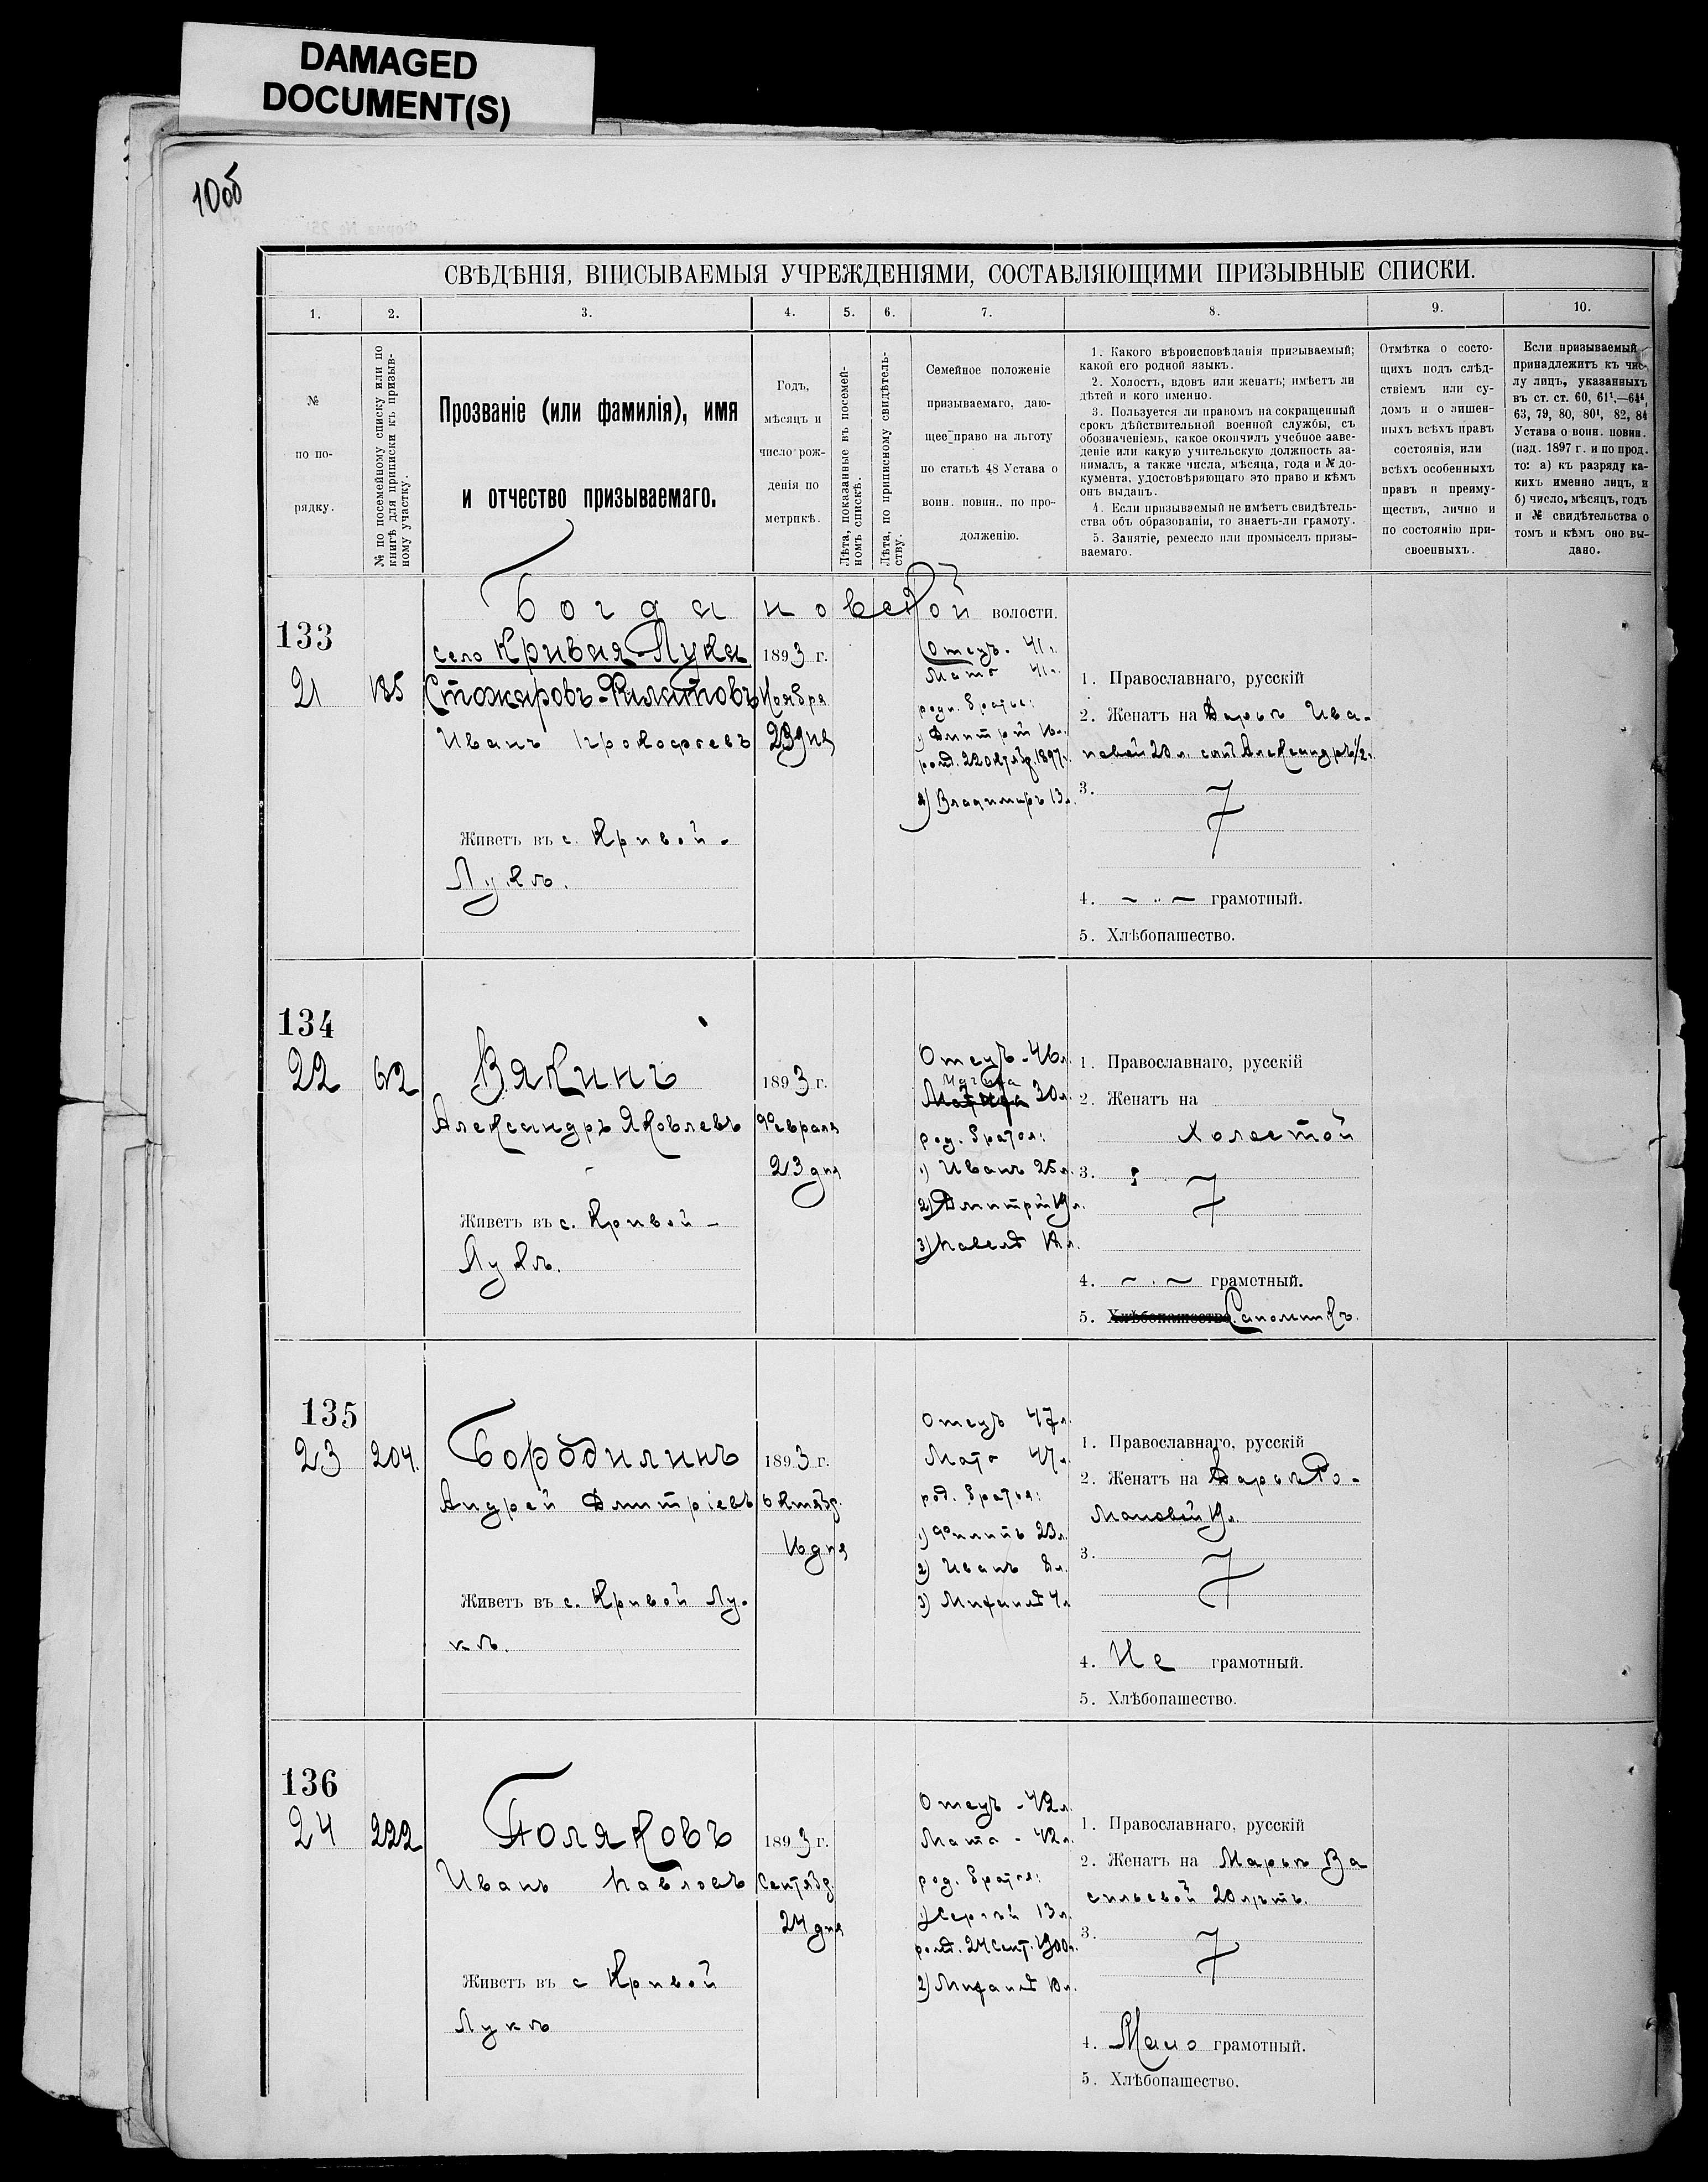 DAMAGED
DOCUMENT(S)
10об
СВѢДѢНІЯ, ВПИСЫВАЕМЫЯ УЧРЕЖДЕНІЯМИ, СОСТАВЛЯЮЩИМИ ПРИЗЫВНЫЕ СПИСКИ.
1. 2. 3. 4. 5. 6. 7. 8. 9. 10.
№
по по-
рядку.
№ по посемейному списку или по
книгѣ для приписки къ призыв-
ному участку.
Прозваніе (или фамилія), имя
и отчество призываемаго.
Годъ,
мѣсяцъ и
число рож-
денія по
метрикѣ.
Лѣта, показанные въ посемей-
номъ спискѣ.
Лѣта, по приписному свидѣтель-
ству.
Семейное положеніе
призываемаго, даю-
щее право на льготу
по статьѣ 48 Устава о
воин. повин.. по про-
долженію.
1. Какого вѣроисповѣданія призываемый;
какой его родной языкъ.
2. Холостъ, вдовъ или женатъ; имѣетъ ли
дѣтей и кого именно.
3. Пользуется ли правомъ на сокращенный
срокъ дѣйствительной военной службы, съ
обозначеніемъ, какое окончилъ учебное заве-
деніе или какую учительскую должность за-
нималъ, а также числа, мѣсяца, года и № до-
кумента, удостовѣряющаго это право и кѣмъ
онъ выданъ.
4. Если призываемый не имѣетъ свидѣтель-
ства объ образованіи, то знаетъ-ли грамоту.
5. Занятіе, ремесло или промыселъ призы-
ваемаго.
Отмѣтка о состо-
щихъ подъ слѣд-
ствіемъ или су-
домъ и о лишен-
ныхъ всѣхъ правъ
состоянія, или
всѣхъ особенныхъ
правъ и преиму-
ществъ, лично и
по состоянію при-
своенныхъ.
Если призываемый
принадлежитъ къ чис-
лу лицъ, указанныхъ
въ ст. ст. 60, 61¹,—64⁴,
63, 79, 80, 80¹, 82, 84
Устава о воин. повин.
(изд. 1897 г. и по прод.
то: а) къ разряду ка-
кихъ именно лицъ, и
б) число, мѣсяцъ, годъ
и № свидѣтельства о
томъ и кѣмъ оно вы-
дано.
Богдановской волости.
133
21 135
село Кривая-Лука
Стожаровъ-Филатовъ
Иванъ Прокофьевъ
Живетъ въ с. Кривой-
Лукѣ.
1893 г.
Ноября
23 дня
Отецъ - 41 л.
Мать 41 л.
родн. братья:
1) Дмитрій 16 л.
рожд. 22 октябр. 1897 г.
2) Владимиръ 13 л.
1. Православнаго, русскій
2. Женатъ на Дарьѣ Ива-
новой 20 л. сынъ Александръ 1/2 г.
3.
4. грамотный.
5. Хлѣбопашество.
134
22 62
Вякинъ
Александръ Яковлевъ
Живетъ въ с. Кривой-
Лукѣ.
1893 г.
Февраля
23 дня
Отецъ - 46 л.
Мачиха
30 л.
род. братья:
1) Иванъ 25 л.
2) Дмитрій 19 л.
3) Павелъ
1. Православнаго, русскій
2. Женатъ на
Холостой
3.
4. грамотный.
5. Хлѣбопашество. Сапожникъ.
135
23 204.
Бородилинъ
Андрей Дмитріевъ
Живетъ въ с. Кривой Лу-
кѣ.
1893 г.
Октябр.
16 дня
Отецъ 47 л.
Мать 47 л.
род. братья:
1) Филипъ 23 л.
2) Иванъ 8 л.
3) Михаилъ 4 л.
1. Православнаго, русскій
2. Женатъ на Дарьѣ Ро-
мановой 19 л.
3.
4. Не грамотный.
5. Хлѣбопашество.
136
24 222
Поляковъ
Иванъ Павловъ
Живетъ въ с Кривой
Лукѣ
1893 г.
Сентябр.
24 дня
Отецъ - 42 л.
Мать - 42 л.
род. братья:
1) Сергѣй 13 л.
рожд. 24 Сент. 1900 г.
2) Михаилъ 10 л.
1. Православнаго, русскій
2. Женатъ на Марьѣ Ва
сильевой 20 лѣтъ.
3.
4. Мало грамотный.
5. Хлѣбопашество.